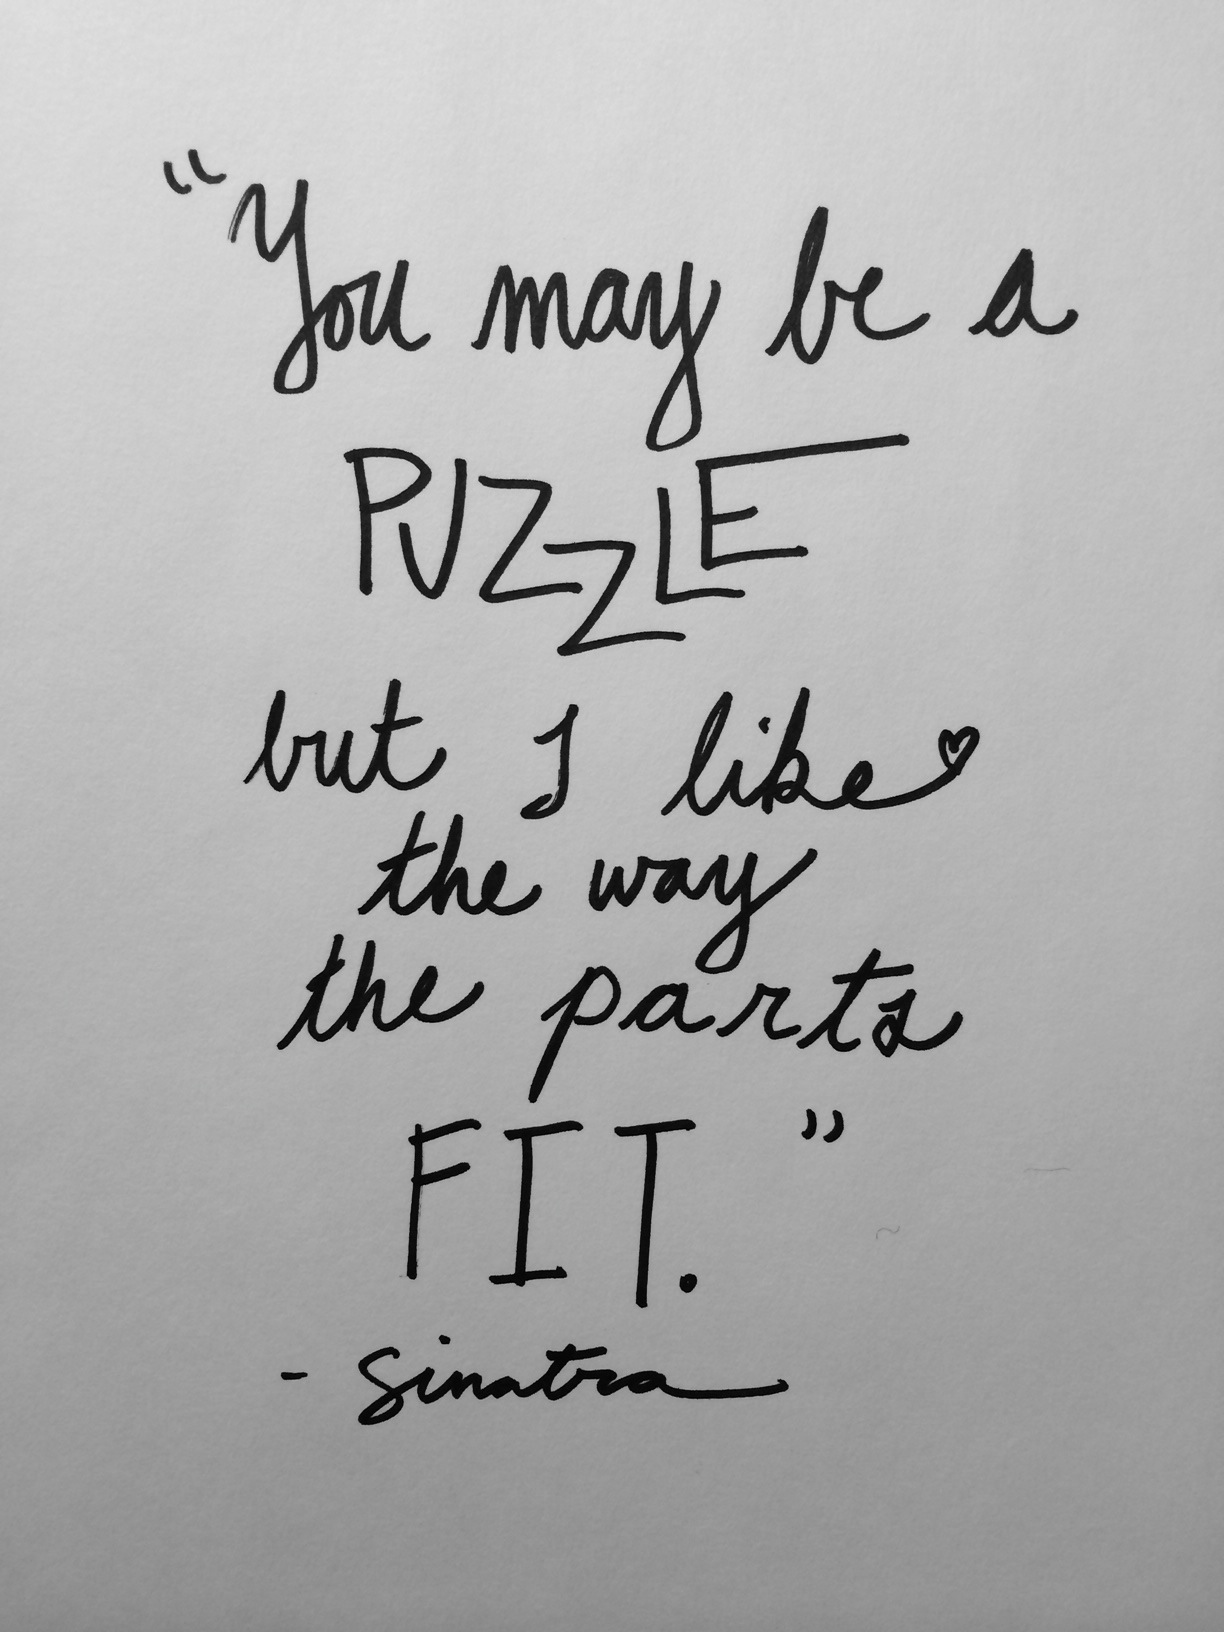 “You may be a
PUZZLE
but I like
the way
the parts
FIT.”
- Sinatra